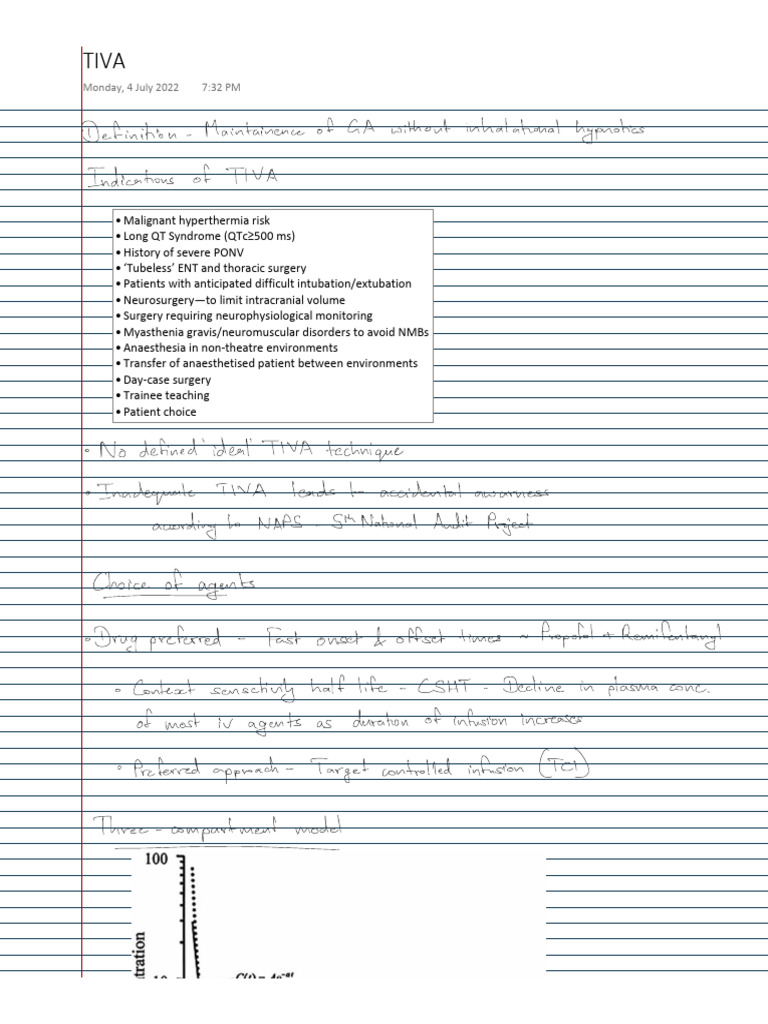 TIVA
Monday, 4 July 2022 7:32 PM
Definition - Maintainence of GA without inhalational hypnotics
Indications of TIVA
• Malignant hyperthermia risk
• Long QT Syndrome (QTc≥500 ms)
• History of severe PONV
• ‘Tubeless’ ENT and thoracic surgery
• Patients with anticipated difficult intubation/extubation
• Neurosurgery—to limit intracranial volume
• Surgery requiring neurophysiological monitoring
• Myasthenia gravis/neuromuscular disorders to avoid NMBs
• Anaesthesia in non-theatre environments
• Transfer of anaesthetised patient between environments
• Day-case surgery
• Trainee teaching
• Patient choice
• No defined 'ideal' TIVA technique
• Inadequate TIVA leads to accidental awarness
according to NAP5 - 5th National Audit Project
Choice of agents
• Drug preferred - Fast onset & offset times ~ Propofol + Remifentanyl
• Context sensitivity half life - CSHT - Decline in plasma conc.
of most iv agents as duration of infusion increases
• Preferred approach - Target controlled infusion (TCI)
Three - compartment model
100
tration